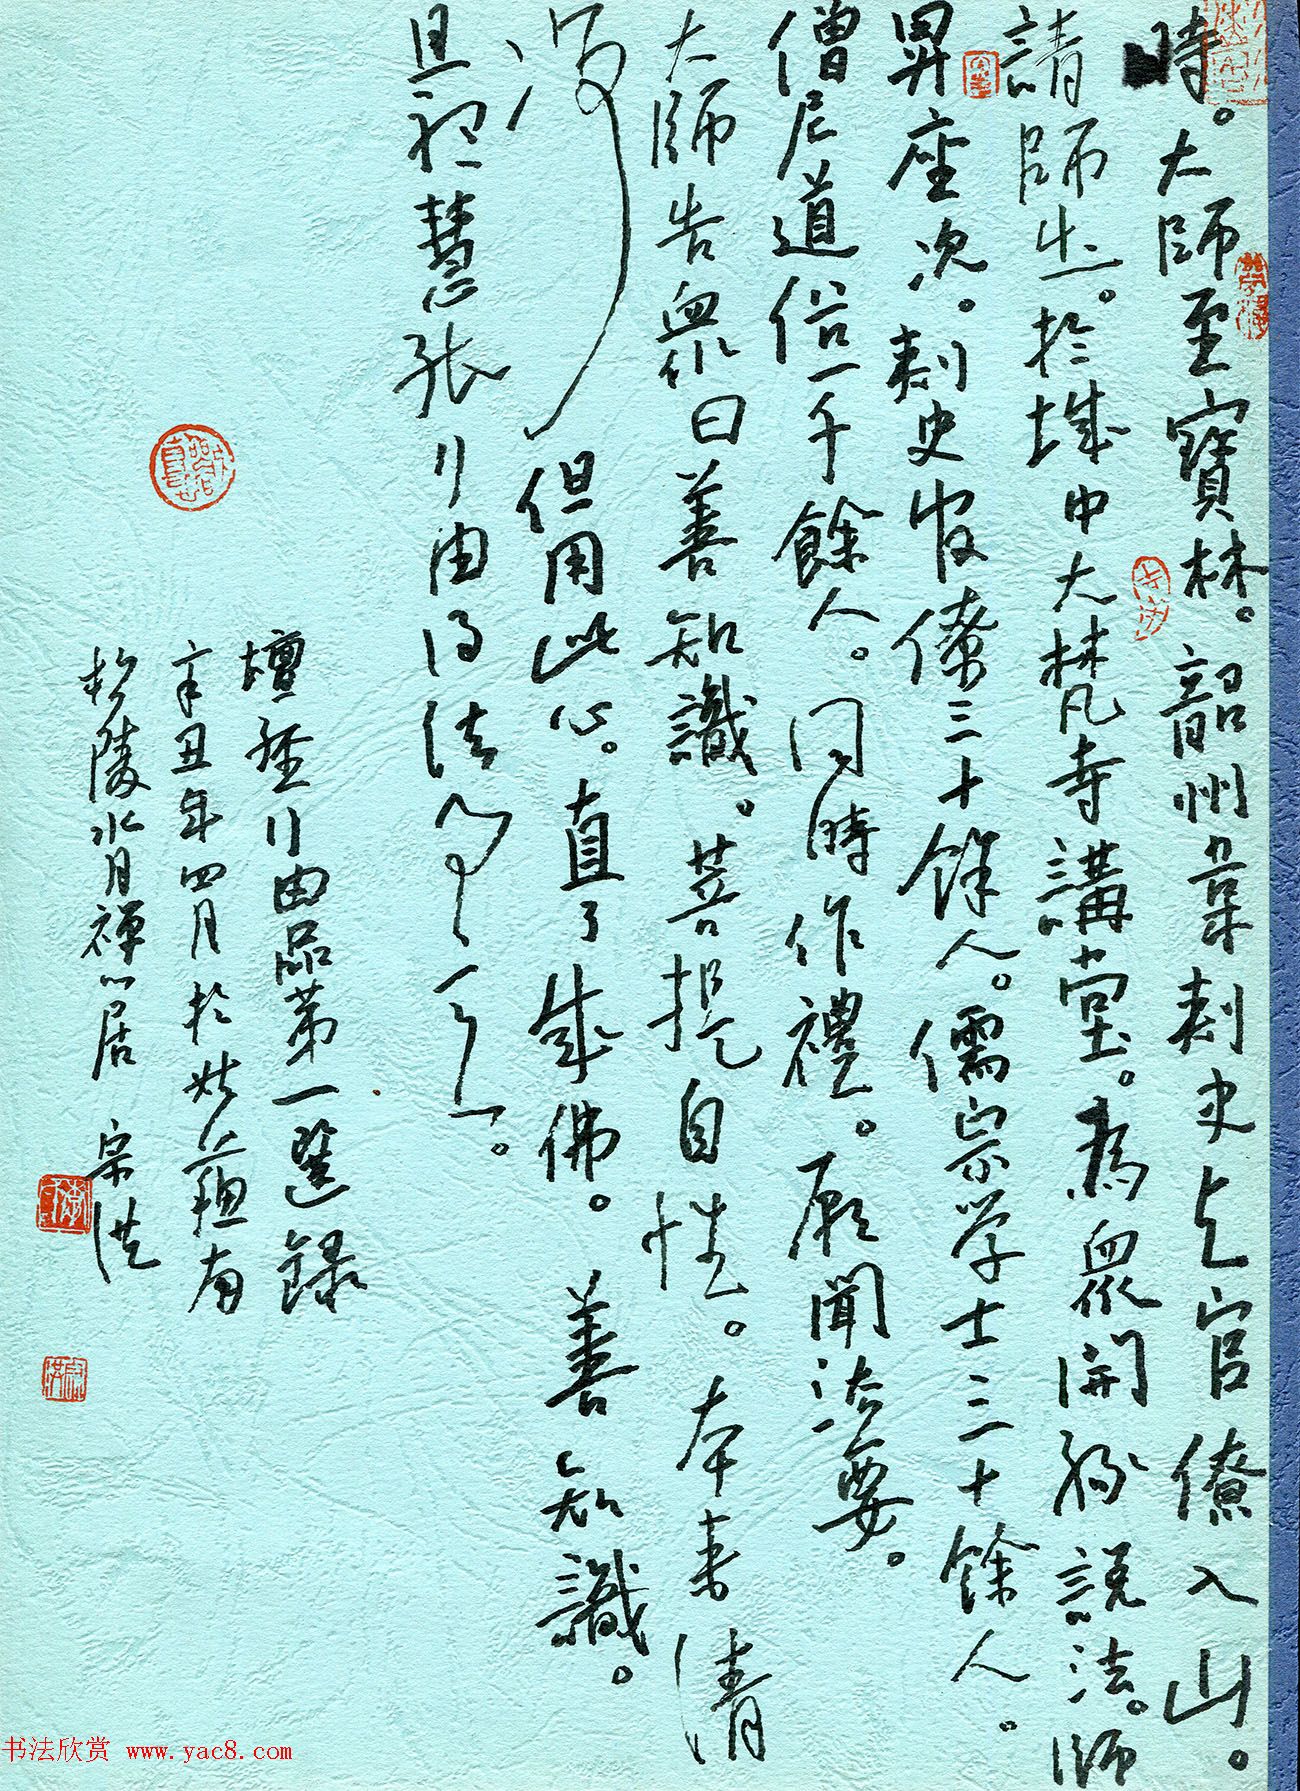 時。大師至寶林。韶州韋刺史與官僚入山。
請師出。於城中大梵寺講堂。為眾開緣說法。師
昇座次。刺史官僚三十餘人。儒宗学士三十餘人。
僧尼道俗一千餘人。同時作禮。願聞法要。
大師告眾曰善知識。菩提自性。本来清
淨 但用此心。直了成佛。善知識。
且聽慧能行由得法事意。
壇經行由品第一選錄
辛丑年四月於姑蘇南
松陵水月禪居 宗洪
书法欣赏 www.yac8.com